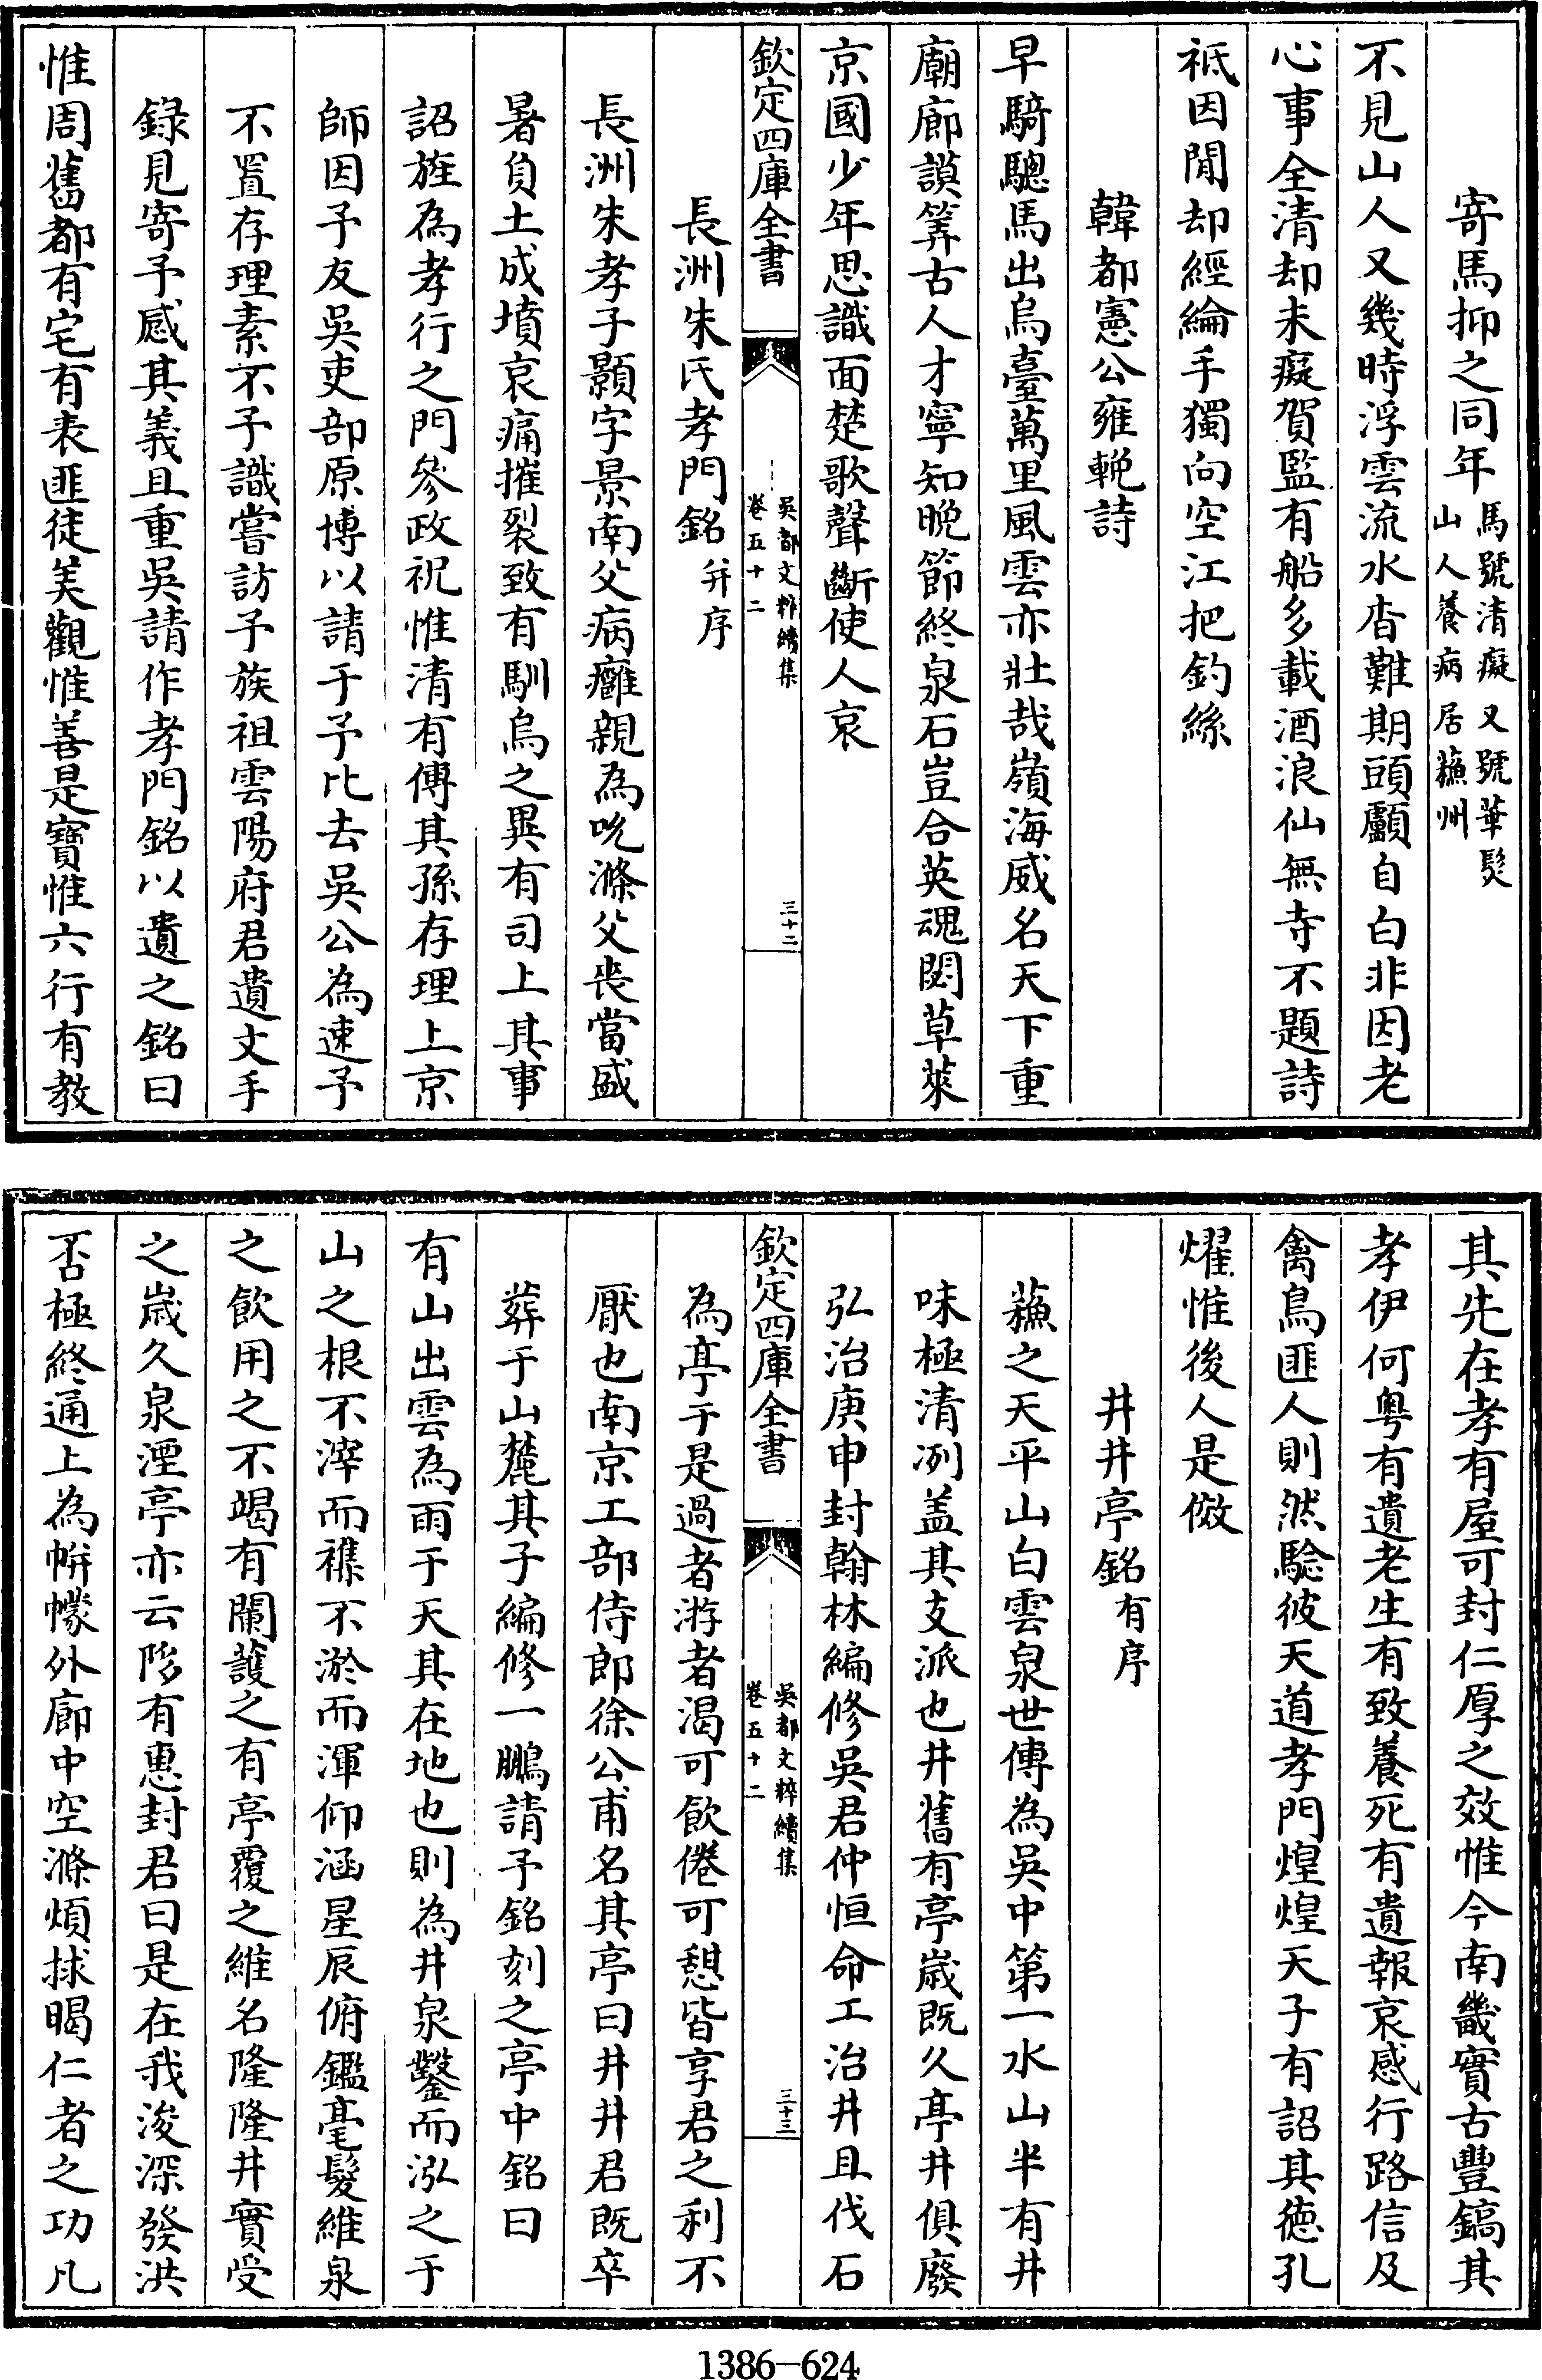 寄馬抑之同年馬號清癡又號華髮山人養病居蘓州
不見山人又幾時浮雲流水杳難期頭顱自白非因老
心事全清却未癡賀監有船多載酒浪仙無寺不題詩
祗因閒却經綸手獨向空江把釣絲
韓都憲公雍輓詩
早騎驄馬出烏臺萬里風雲亦壯哉嶺海威名天下重
廟廊謨筭古人才寧知晚節終泉石豈合英魂閟草萊
京國少年思識面楚歌聲斷使人哀
欽定四庫全書
吳都文粹續集
卷五十二
三十二
長洲朱氏孝門銘并序
長洲朱孝子顥字景南父病癰親為吮滌父丧當盛
暑負土成墳哀痛摧裂致有馴烏之異有司上其事
詔旌為孝行之門參政祝惟清有傳其孫存理上京
師因予友吳吏部原博以請于予比去吳公為速予
不置存理素不予識嘗訪予族祖雲陽府君遺文手
錄見寄予感其義且重吳請作孝門銘以遺之銘曰
惟周舊都有宅有表匪徒美觀惟善是寶惟六行有教
其先在孝有屋可封仁厚之效惟今南畿實古豐鎬其
孝伊何粤有遺老生有致養死有遺報哀感行路信及
禽鳥匪人則然騐彼天道孝門煌煌天子有詔其德孔
燿惟後人是傚
井井亭銘有序
蘓之天平山白雲泉世傳為吳中第一水山半有井
味極清冽盖其支派也井舊有亭歳既久亭井俱廢
弘治庚申封翰林編修吳君仲恒命工治井且伐石
欽定四庫全書
吳都文粹續集
卷五十二
三十三
為亭于是過者游者渴可飲倦可憩皆享君之利不
厭也南京工部侍郎徐公甫名其亭曰井井君既卒
葬于山麓其子編修一鵬請予銘刻之亭中銘曰
有山出雲為雨于天其在地也則為井泉鑿而泓之于
山之根不滓而襍不淤而渾仰涵星辰俯鑑毫髮維泉
之飲用之不竭有闌護之有亭覆之維名隆隆井實受
之歳久泉湮亭亦云阤有惠封君曰是在我浚深發洪
否極終通上為帡幪外廊中空滌煩捄暍仁者之功凡
1386-624